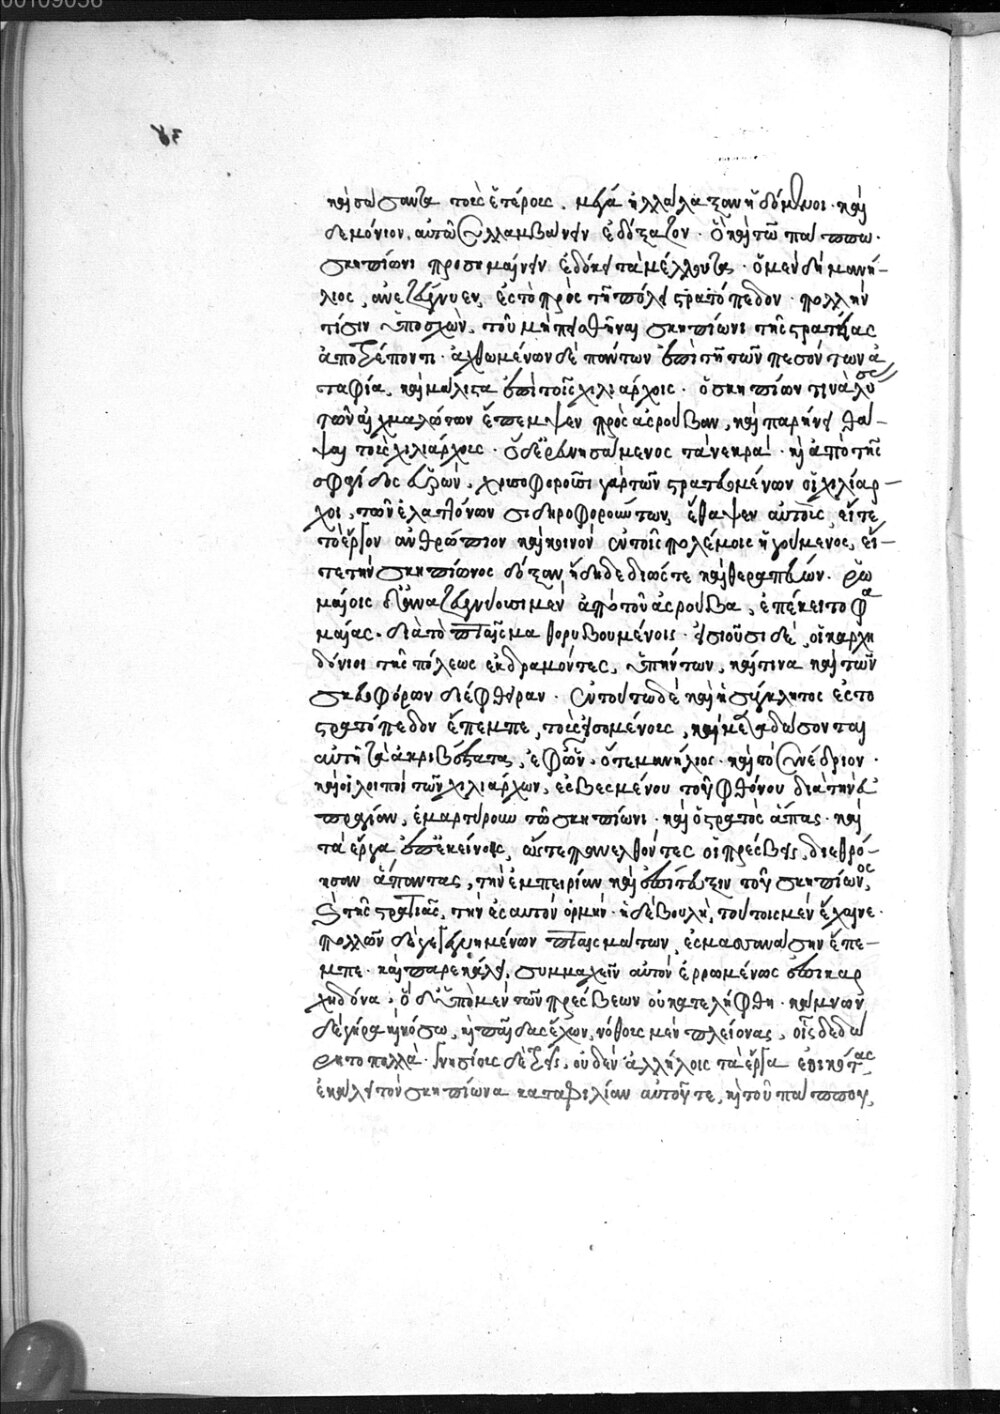 καὶ σώσαντα τοὺς ἑτέρους. μεγάλα ἠλάλαξαν ἡδόμενοι· καὶ
δαιμόνιον αὐτῷ συλλαμβάνειν ἐδόξαζον· ὃ καὶ τῷ πάππῳ
σκηπίωνι προσημαίνειν ἐδόκει τὰ μέλλοντα. ὁ μὲν δὴ μανί-
λιος, ἀνεζεύγνυεν, ἐς τὸ πρὸς τῇ πόλει στρατόπεδον· πολλὴν
τίσιν ὑποσχὼν, τοῦ μὴ πεισθῆναι σκηπίωνι τῆς στρατείας
ἀποτρέποντι· ἀχθομένων δὲ πάντων ἐπὶ τῇ τῶν πεσόντων ἀ
ταφίᾳ, καὶ μάλιστα ἐπὶ τοῖς χιλιάρχοις· ὁ σκηπίων τινὰ λύσας
τῶν αἰχμαλώτων ἔπεμψεν πρὸς ἀσρούβαν, καὶ παρῄνει θά-
ψαι τοὺς χιλιάρχους· ὁ δὲ ἐρευνησάμενος τὰ νεκρά· καὶ ἀπὸ τῆς
σφραγῖδος εὑρὼν, χρυσοφοροῦσι γὰρ τῶν στρατευομένων οἱ χιλίαρ-
χοι, τῶν ἐλαττόνων σιδηροφορούντων, ἔθαψεν αὐτοὺς, εἴτε
τὸ ἔργον ἀνθρώπιον καὶ κοινὸν ἐν τοῖς πολέμοις ἡγούμενος, εἴ-
τε τὴν σκηπίωνος δόξαν ἤδη δεδιώς τε καὶ θεραπεύων. ῥω
μαίοις δ' ἀναζευγνύουσι μὲν ἀπὸ τοῦ ἀσρούβα, ἐπέκειτο φα
μαίας· διὰ τὸ πταῖσμα θορυβουμένοις· ἐσιοῦσι δὲ, οἱ καρχη
δόνιοι τῆς πόλεως ἐκδραμόντες, ὑπήντων, καί τινα καὶ τῶν
σκευοφόρων διέφθειραν· ἐν τούτῳ δὲ καὶ ἡ σύγκλητος ἐς τὸ
στρατόπεδον ἔπεμπε, τοὺς εἰσομένους, καὶ μεταδώσοντας
αὐτῇ τὰ ἀκριβέστατα, ἐφ' ὧν· ὅ τε μανίλιος· καὶ τὸ συνέδριον·
καὶ οἱ λοιποὶ τῶν χιλιάρχων, ἐσβεσμένου τοῦ φθόνου διὰ τὴν εὐ
πραξίαν, ἐμαρτύρουν τῷ σκηπίωνι· καὶ ὁ στρατὸς ἅπας· καὶ
τὰ ἔργα ἐπ' ἐκείνοις, ὥστε πανελθόντες οἱ πρέσβεις, διεθρό-
ησαν ἅπαντας, τὴν ἐμπειρίαν καὶ ἐπίτευξιν τοῦ σκηπίωνος,
καὶ τῆς στρατιᾶς, τὴν ἐς αὐτὸν ὁρμήν· ἡ δὲ βουλὴ, τούτοις μὲν ἔχαιρε·
πολλῶν δὲ γεγενημένων πταισμάτων, ἐς μασσανάσσην ἔπε-
μπε· καὶ παρεκάλει, συμμαχεῖν αὐτὸν ἐρρωμένως ἐπὶ καρ
χηδόνα. ὁ δ' ὑπὸ μὲν τῶν πρέσβεων οὐ κατελήφθη· κάμνων
δὲ γήρᾳ καὶ νόσῳ, καὶ παῖδας ἔχων, νόθους μὲν πλείονας, οἷς ἐδεδώ
ρητο πολλὰ· γνησίους δὲ τρεῖς, οὐδὲν ἀλλήλοις τὰ ἔργα ἐοικότας
ἐκάλει τὸν σκηπίωνα κατὰ φιλίαν αὐτοῦ τε, καὶ τοῦ πάππου,